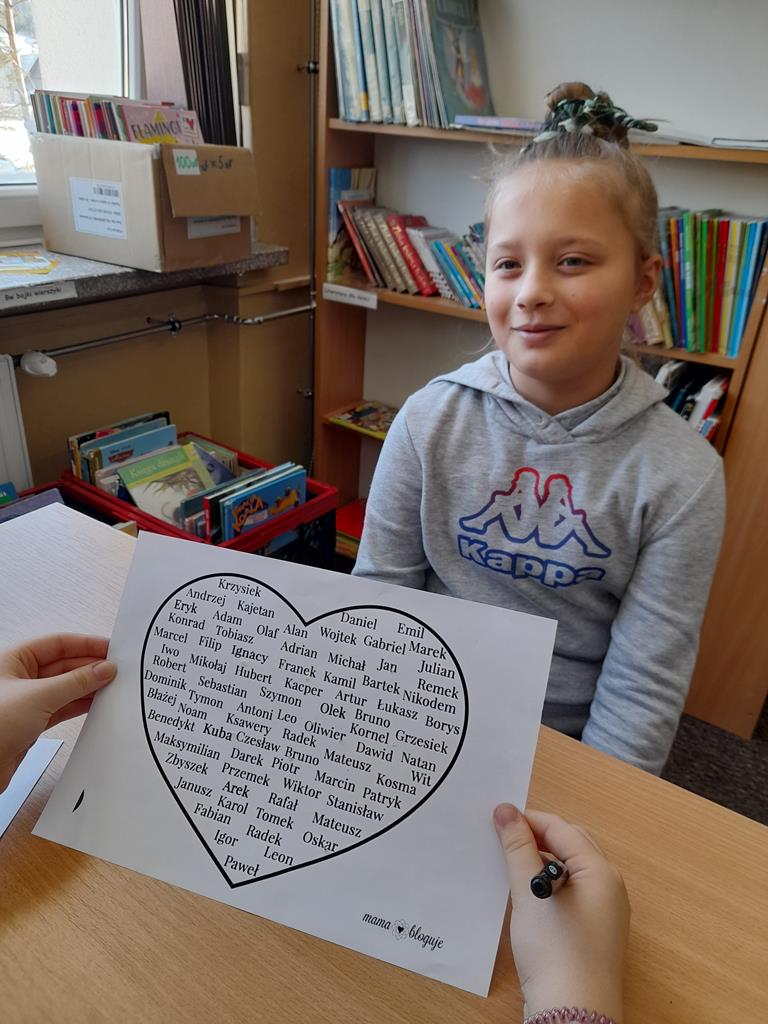 FLAMINGI
100 zł
Bw bajki wierszyki
Księga dżungli
Kappa
Krzysiek
Andrzej Kajetan Daniel Emil
Eryk Adam Olaf Alan Wojtek Gabriel Marek
Konrad Tobiasz Adrian Michał Jan Julian
Marcel Filip Ignacy Franek Kamil Bartek Remek
Iwo Mikołaj Hubert Kacper Artur Łukasz Nikodem
Robert Sebastian Szymon Olek Bruno Borys
Dominik Tymon Antoni Leo Oliwier Kornel Grzesiek
Błażej Noam Ksawery Radek Mateusz Dawid Natan
Benedykt Kuba Czesław Bruno Kosma Wit
Maksymilian Darek Piotr Marcin Patryk
Zbyszek Przemek Wiktor Stanisław
Arek Rafał Mateusz
Janusz Karol Tomek Oskar
Fabian Radek
Igor Leon
Paweł
mama bloguje